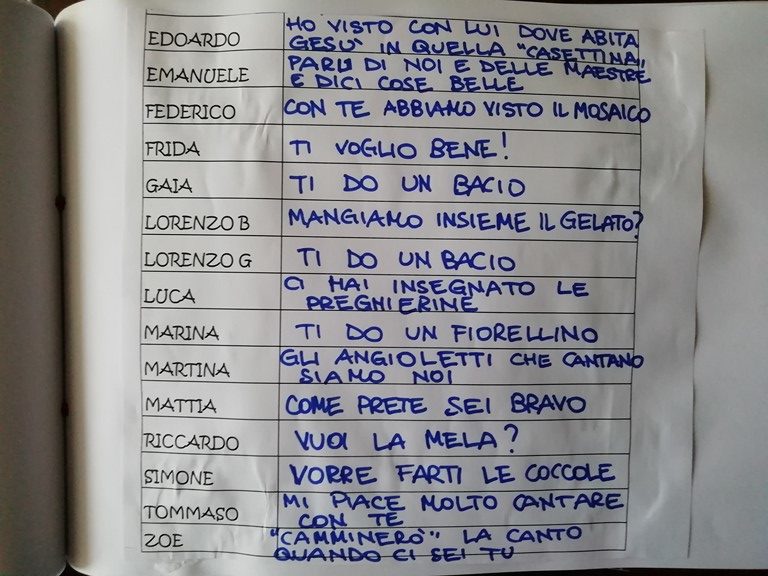 EDOARDO HO VISTO CON LUI DOVE ABITA
GESÙ IN QUELLA "CASETTINA"
EMANUELE PARLI DI NOI E DELLE MAESTRE
E DICI COSE BELLE
FEDERICO CON TE ABBIAMO VISTO IL MOSAICO
FRIDA TI VOGLIO BENE!
GAIA TI DO UN BACIO
LORENZO B MANGIAMO INSIEME IL GELATO?
LORENZO G TI DO UN BACIO
LUCA CI HAI INSEGNATO LE
PREGHIERINE
MARINA TI DO UN FIORELLINO
MARTINA GLI ANGIOLETTI CHE CANTANO
SIAMO NOI
MATTIA COME PRETE SEI BRAVO
RICCARDO VUOI LA MELA?
SIMONE VORRE FARTI LE COCCOLE
TOMMASO MI PIACE MOLTO CANTARE
CON TE
ZOE "CAMMINERÒ" LA CANTO
QUANDO CI SEI TU